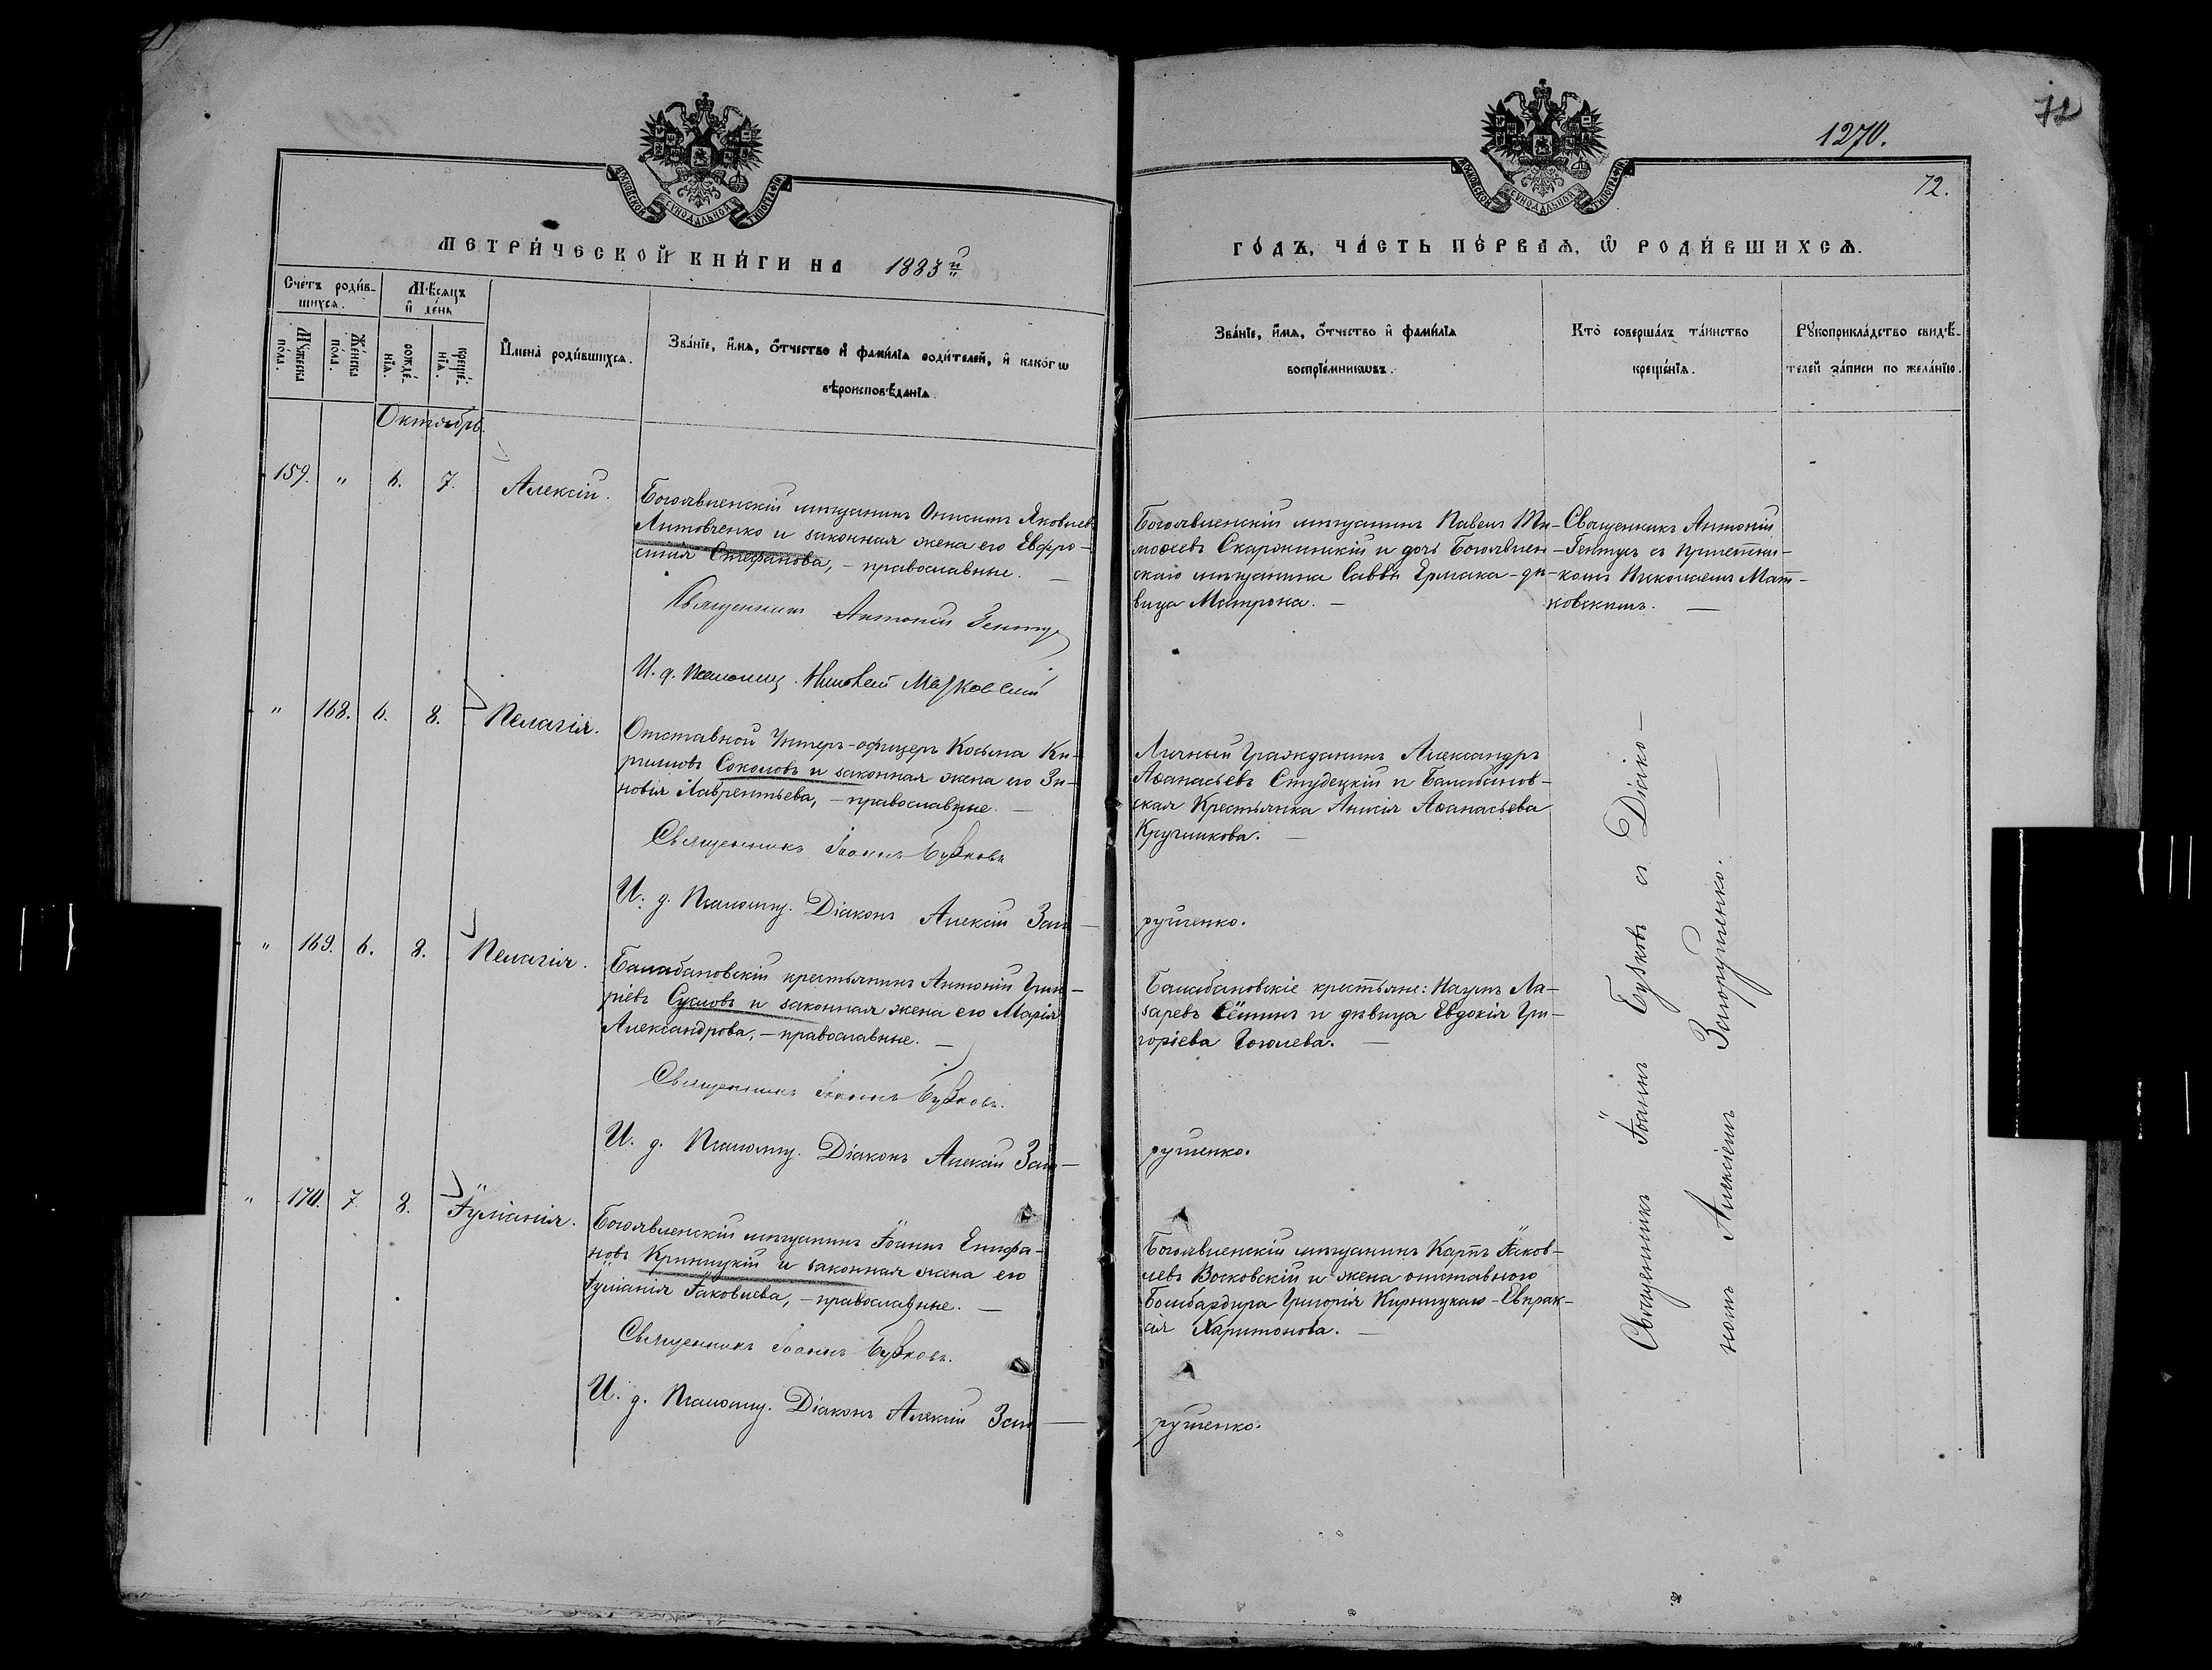 1270.
72
72.
МОСКОВСКОЙ СѴНОДАЛЬНОЙ ТИПОГРАФІИ
МОСКОВСКОЙ СѴНОДАЛЬНОЙ ТИПОГРАФІИ
МЕТРИ́ЧЕСКОЙ КНИ́ГИ НА 1883й
ГО́ДЪ, ЧА́СТЬ ПЕ́РВАѦ, Ѡ РОДИ́ВШИХСѦ.
Сче́тъ роди́в-
шихсѧ.
Мѣ́сѧцъ
и҆ де́нь
Мꙋ́жеска
по́ла.
Же́нска
по́ла.
рожде́-
нїѧ.
креще́-
нїѧ.
И҆мена̀ роди́вшихсѧ.
Зва́нїе, и҆́мѧ, ѻ҆́тчество и҆ фами́лїѧ роди́телей, и҆ како́гѡ
вѣроисповѣ́данїѧ.
Зва́нїе, и҆́мѧ, ѻ҆́тчество и҆ фами́лїѧ
воспрїе́мникѡвъ.
Кто̀ соверша́лъ та́инство
креще́нїѧ.
Рꙋкоприкла́дство свидѣ́-
телей за́писи по жела́нїю.
Октябрь.
159. " 6. 7. Алексій.
Богоявленскій мѣщанинъ Онисимъ Яковлев
Литовченко и законная жена его Евфро-
синія Стефанова, - православные. -
Священникъ Антоній Гентуз
И. д. Псаломщ. Николай Матковскій
Богоявленскій мѣщанинъ Павелъ Ти-
моѳеевъ Скаржинскій и дочь Богоявлен-
скаго мѣщанина Саввы Ермака - дѣ-
вица Матрона. -
Священникъ Антоній
Гентузъ съ Причетни-
комъ Николаемъ Мат-
ковскимъ. -
" 168. 6. 8. Пелагія.
Отставной Унтеръ-офицеръ Косьма Ки-
риловъ Соколовъ и законная жена его Зи-
новія Лаврентьева, - православные. -
Священникъ Іоаннъ Бузковъ
И. д. Псаломщ. Діаконъ Алексій Заго-
рушенко.
Личный Гражданинъ Александръ
Аѳанасьевъ Студецкій и Балабанов-
ская Крестьянка Анисія Аѳанасьева
Кручинкова. -
" 169. 6. 8. Пелагія.
Балабановскій крестьянинъ Антоній Григо-
ріевъ Сусловъ и законная жена его Марія
Александрова, - православные. -
Священникъ Іоаннъ Бузковъ.
И. д. Псаломщ. Діаконъ Алексій Заго-
рушенко.
Балабановскіе крестьяне: Наумъ Ла-
заревъ Сёминъ и дѣвица Евдокія Гри-
горіева Гоголева. -
" 170. 7. 8. Іуліанія.
Богоявленскій мѣщанинъ Іоаннъ Епифа-
новъ Криницкій и законная жена его
Іуліанія Іаковлева, - православные. -
Священникъ Іоаннъ Бузковъ.
И. д. Псаломщ. Діаконъ Алексій Заго-
рушенко.
Богоявленскій мѣщанинъ Карпъ Іаков-
левъ Восковскій и жена отставного
Бомбардира Григорія Кирницкаго - Евпрак-
сія Харитонова. -
Священникъ Іоаннъ Бузковъ съ Діако-
номъ Алексіемъ Загорушенко.